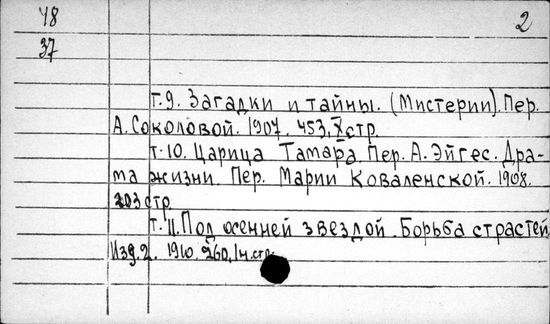 48
2
37
т.9. Загадки и тайны. (Мистерии). Пер.
А. Соколовой. 1907. 453, X стр.
т.10. Царица Тамара. Пер. А. Эйгес. Дра-
ма жизни. Пер. Марии Коваленской. 1908.
203 стр
т.11. Под осенней звездой. Борьба страстей
Изд. 2. 1910. 260, IV стр.